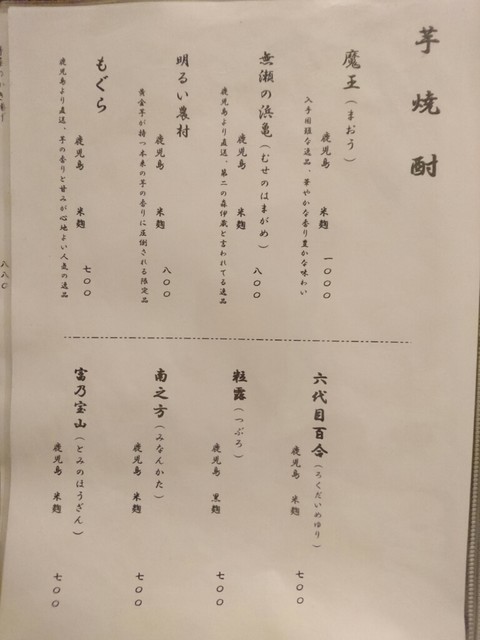 芋焼酎
魔王（まおう）
鹿児島 米麹 一〇〇〇
入手困難な逸品、華やかな香り豊かな味わい
無瀬の浜亀（むせのはまがめ）
鹿児島 米麹 八〇〇
鹿児島より直送、第二の森伊蔵と言われてる逸品
明るい農村
鹿児島 米麹 八〇〇
黄金芋が持つ本来の芋の香りに圧倒される限定品
もぐら
鹿児島 米麹 七〇〇
鹿児島より直送、芋の香りと甘みが心地よい人気の逸品
六代目百合（ろくだいめゆり）
鹿児島 米麹 七〇〇
粒露（つぶろ）
鹿児島 黒麹 七〇〇
南之方（みなんかた）
鹿児島 米麹 七〇〇
富乃宝山（とみのほうざん）
鹿児島 米麹 七〇〇
八八〇